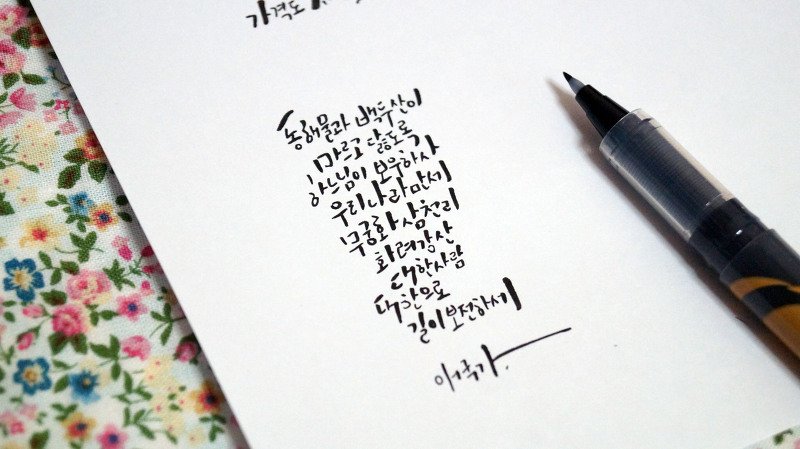 가격도
동해물과 백두산이
마르고 닳도록
하느님이 보우하사
우리나라만세
무궁화 삼천리
화려강산
대한사람
대한으로
길이 보전하세
애국가.